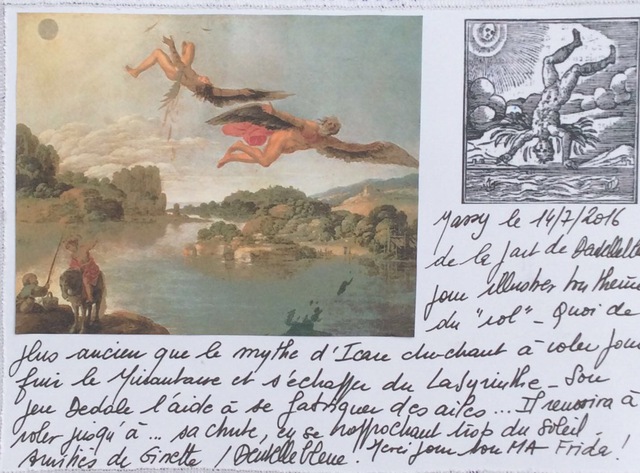 Massy le 14/7/2016
de la part de Dentelle
pour illustrer ton thème
du "vol" - Quoi de
plus ancien que le mythe d'Icare cherchant à voler pour
fuir le Minautaure et s'échapper du Labyrinthe - Son
père Dédale l'aide à se fabriquer des ailes... Il réussira à
voler jusqu'à ... sa chute, en se rapprochant trop du soleil -
Amitiés de Ginette / Dentellebleue ! Merci pour ton MA Frida !